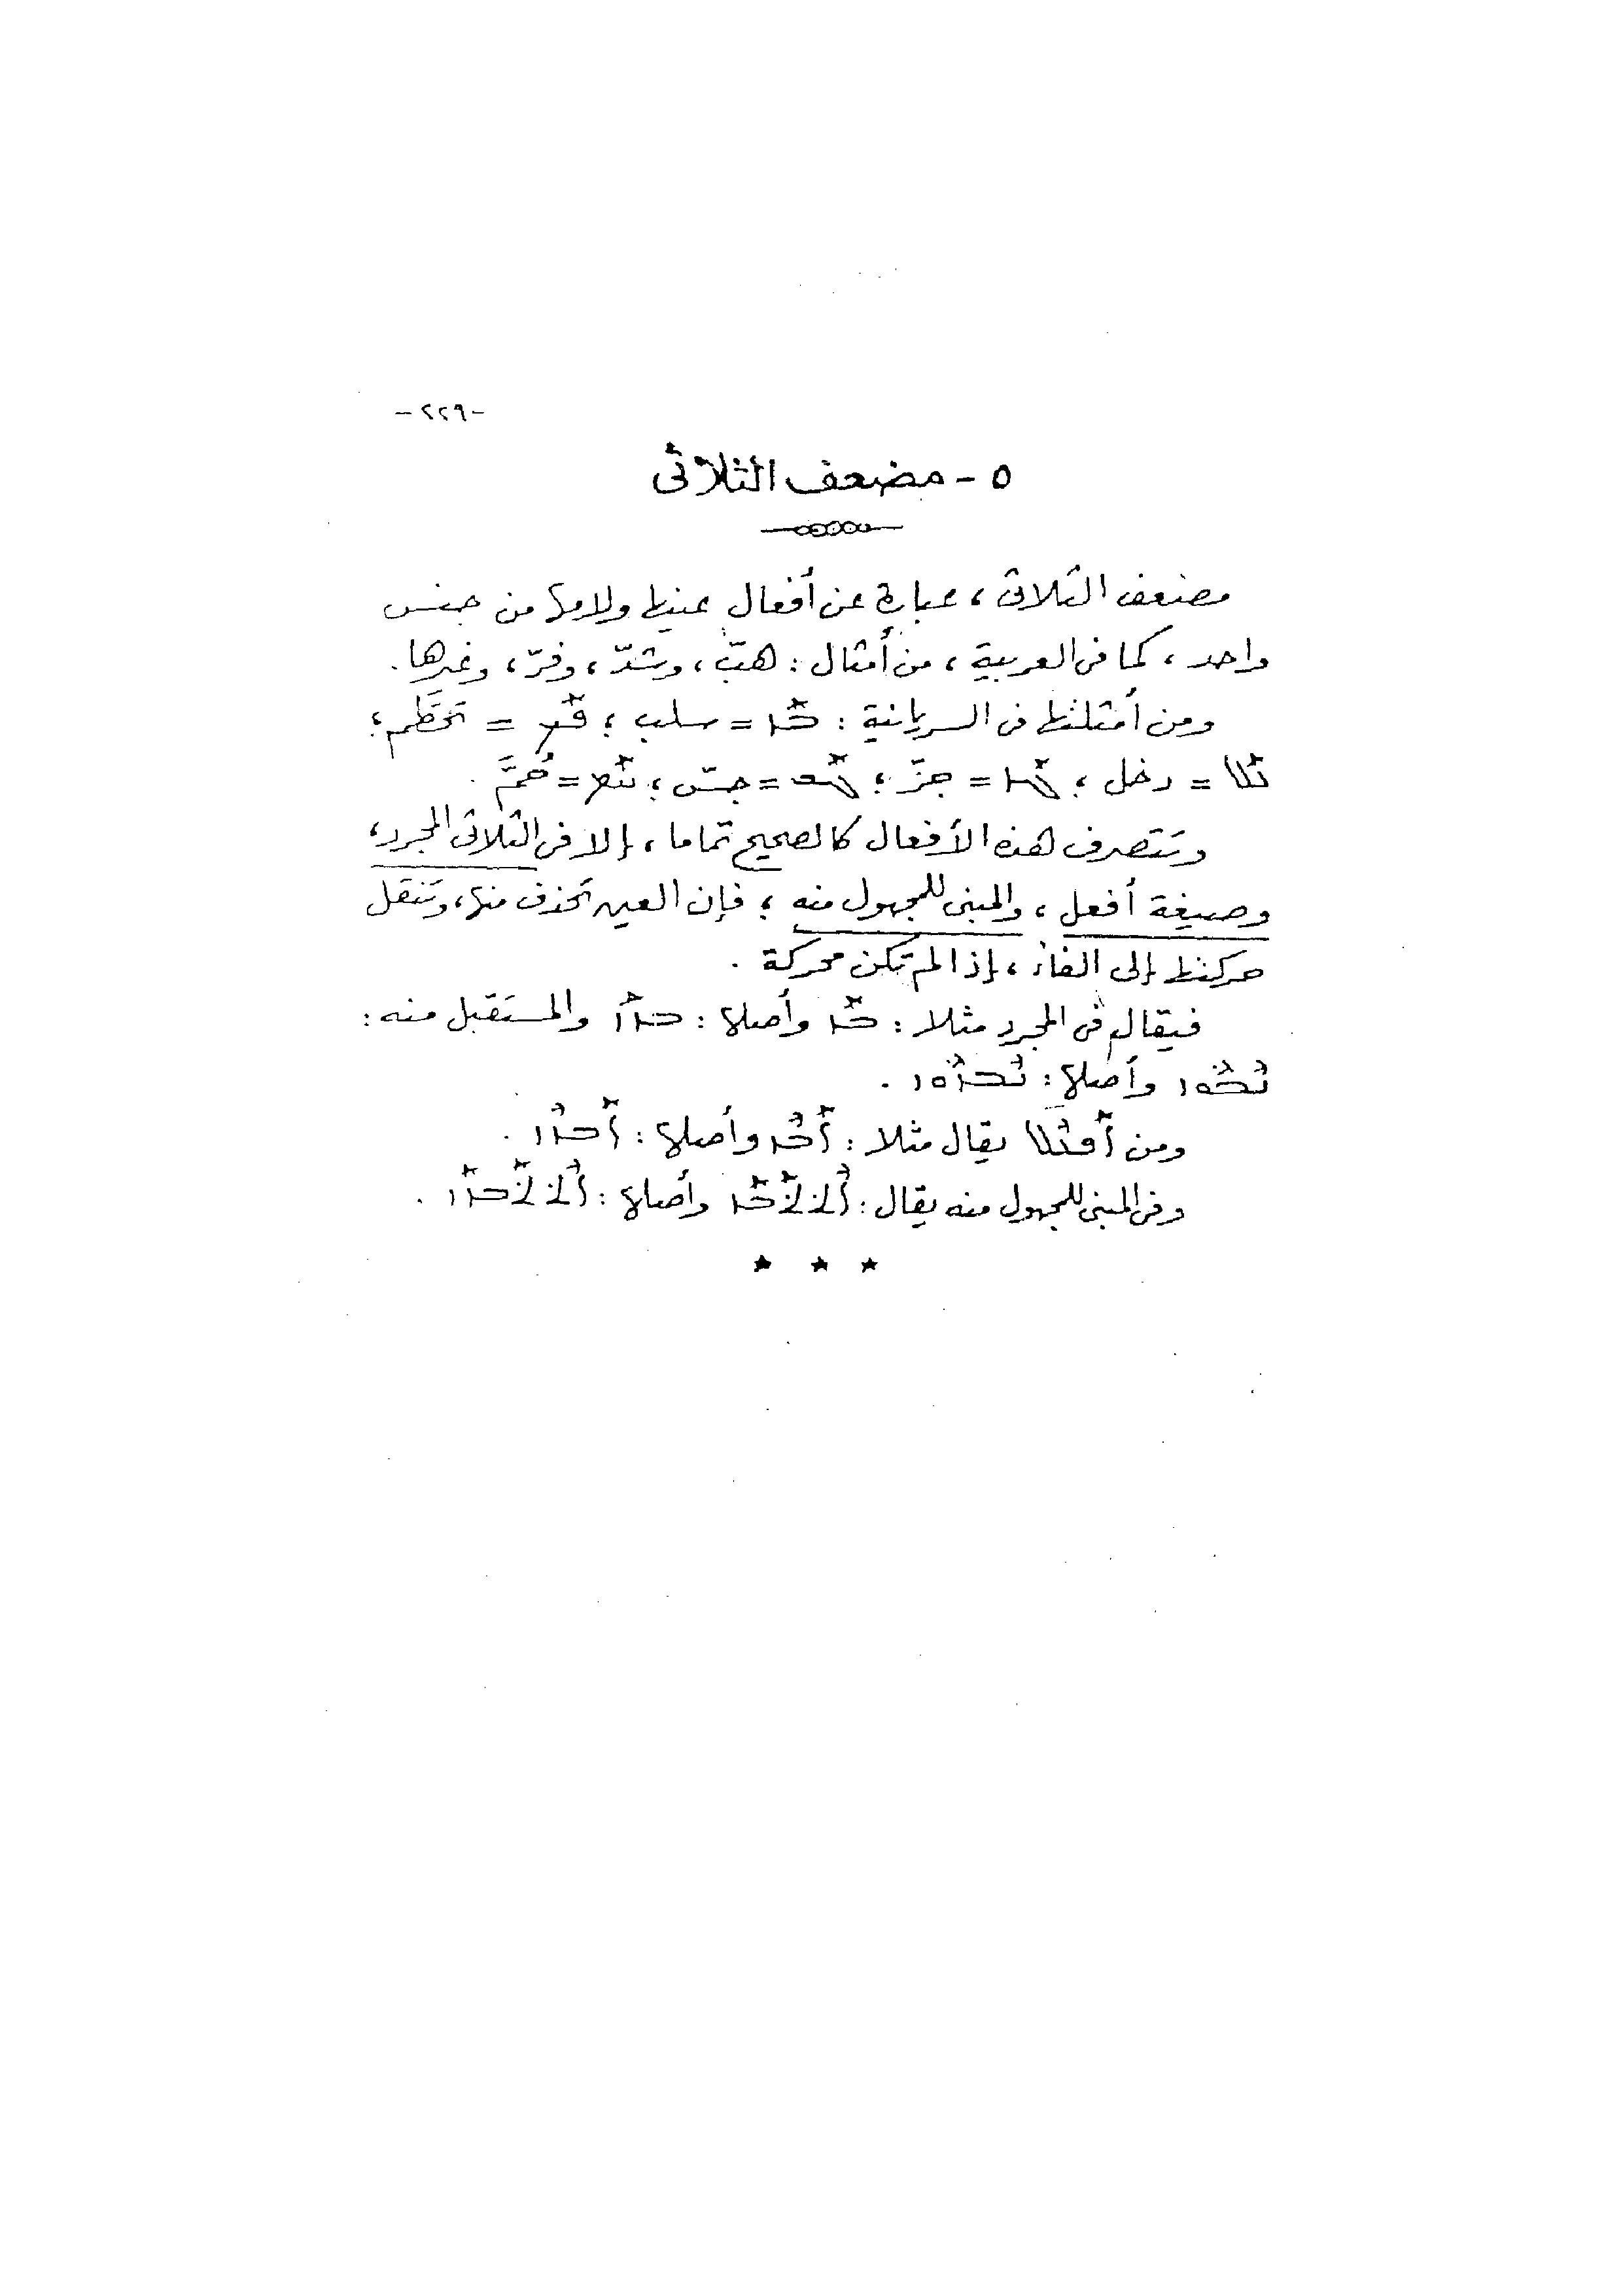 -٢٢٩-
٥ - مضعف الثلاثى
مضعف الثلاثى ، عبارة عن أفعال عينها ولامها من جنس
واحد ، كما فى العربية ، من أمثال : هبّ ، وشدّ ، وفرّ ، وغيرها .
ومن أمثلتها فى السريانية : ܒܰܙ = سلب ؛ = تحَطَّم ؛
ܥܰܠ = دخل ؛ ܓܰܙ = جزّ ؛ = جسّ ؛ = حُمَّ .
وتتصرف هذه الأفعال كالصحيح تماما ، إلا فى الثلاثى المجرد ،
وصيغة أفعل ، والمبنى للمجهول منه ؛ فإن العين تحذف منها ، وتنقل
حركتها إلى الفاء ، إذا لم تكن محركة .
فيقال فى المجرد مثلا : ܒܰܙ وأصله : ܒܙܰܙ والمستقبل منه :
ܢܶܒܽܘܙ وأصله : ܢܶܒܙܽܘܙ .
ومن ܐܰܦܥܶܠ يقال مثلا : ܐܰܒܶܙ وأصله : ܐܰܒܙܶܙ .
وفى المبنى للمجهول منه يقال : ܐܶܬܬܰܒܰܙ وأصله : ܐܶܬܬܰܒܙܰܙ .
* * *